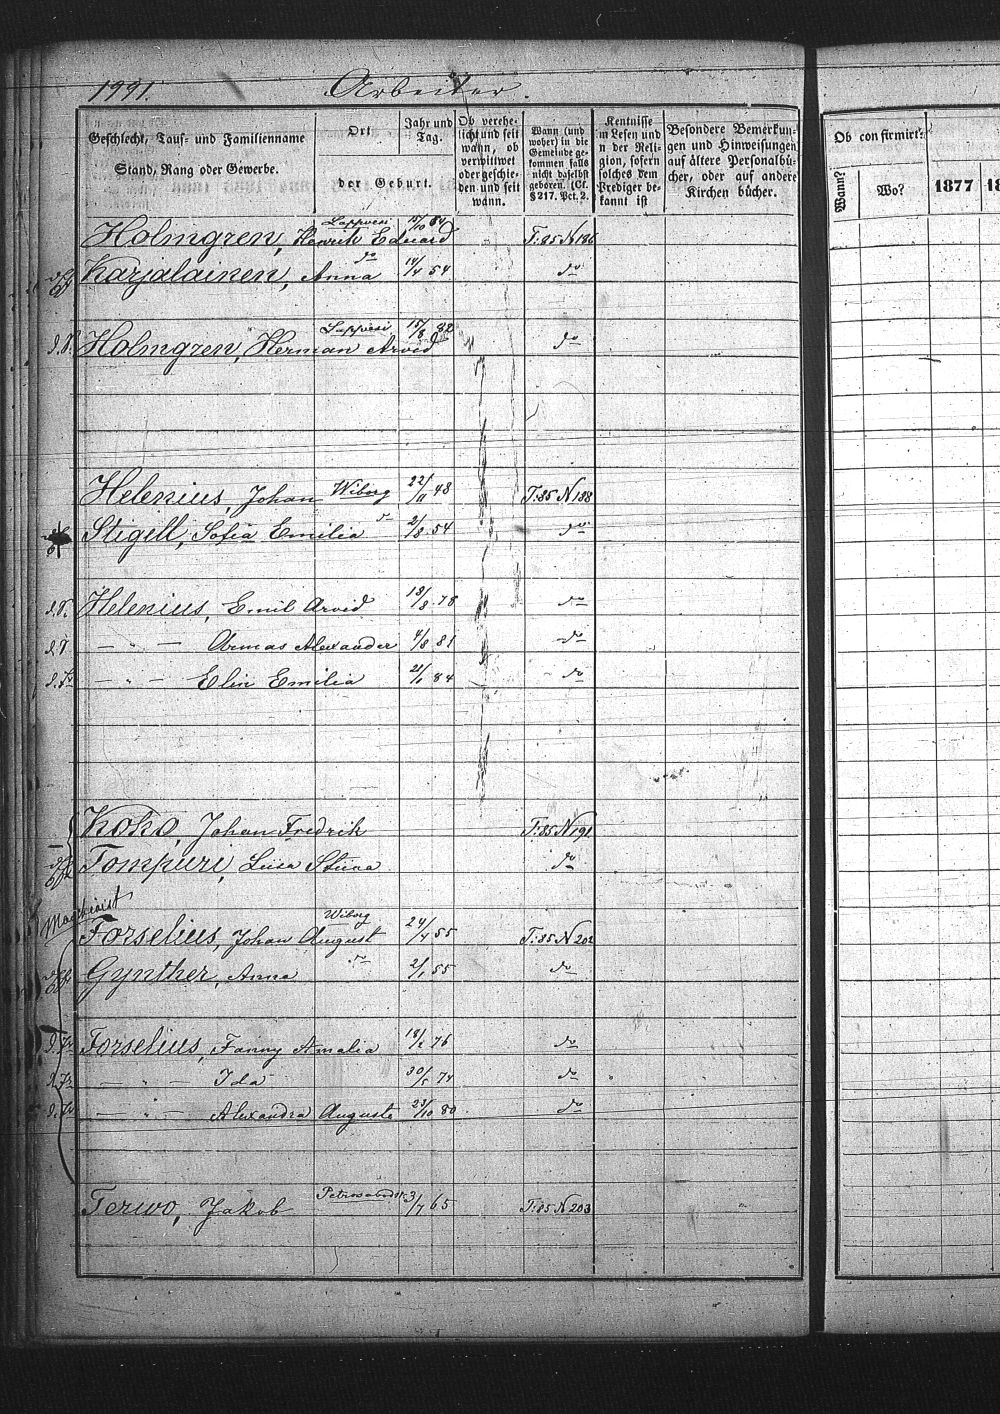 1991. Arbeiter.
Geschlecht, Tauf- und Familienname
Stand, Rang oder Gewerbe.
Ort
der Geburt.
Jahr und
Tag.
Ob verehe-
licht und seit
wann, ob
verwittwet
oder geschie-
den und seit
wann.
Wann (und
woher) in die
Gemeinde ge-
kommen falls
nicht daselbst
geboren. (Cf.
§ 217. Pct. 2.
Kentnisse
in Lesen und
in der Reli-
gion, sofern
solches dem
Prediger be-
kannt ist
Besondere Bemerkun-
gen und Hinweisungen
auf ältere Personalbü-
cher, oder auf andere
Kirchen bücher.
Ob confirmirt:
Wann?
Wo?
1877
Holmgren, Henrik Eduard Lappvesi T:85 N 186
Karjalainen, Anna do 14/4 54 do
Holmgren, Herman Arvid Lappvesi 15/8 82 do
Helenius, Johan Wiborg 22/11 48 T:85 N 188
Stigell, Sofia Emilia do 2/8 54 do
Helenius, Emil Arvid 13/8 78 do
— " — Armas Alexander 4/8 81 do
— " — Elin Emilia 21/1 84 do
Koho, Johan Fredrik T:85 N 191
Tompuri, Liisa Stiina do
Maschinist
Forselius, Johan August Wiborg 24/4 55 T:85 N 202
Gynther, Anna do 2/1 55 do
Forselius, Fanny Amalia 76 do
— " — Ida 30/5 74 do
— " — Alexandra Augusta 23/10 80 do
Terwo, Jakob 3/7 65 T:85 N 203